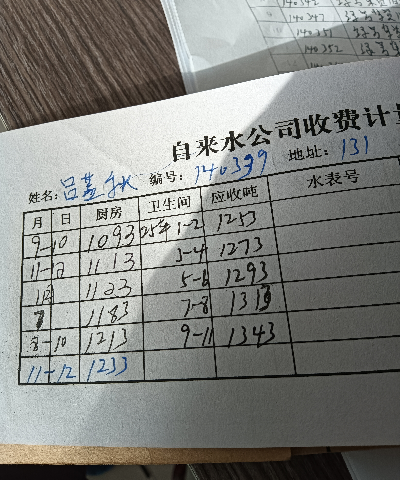 140342
140347
140351
140352
自来水公司收费计量
姓名: 吕 编号: 140399 地址: 131
月 日 厨房 卫生间 应收吨 水表号
9-10 1093 25年 1-2 1253
11-12 1113 3-4 1273
1123 5-6 1293
7 1183 7-8 1313
8-10 1213 9-11 1343
11-12 1233